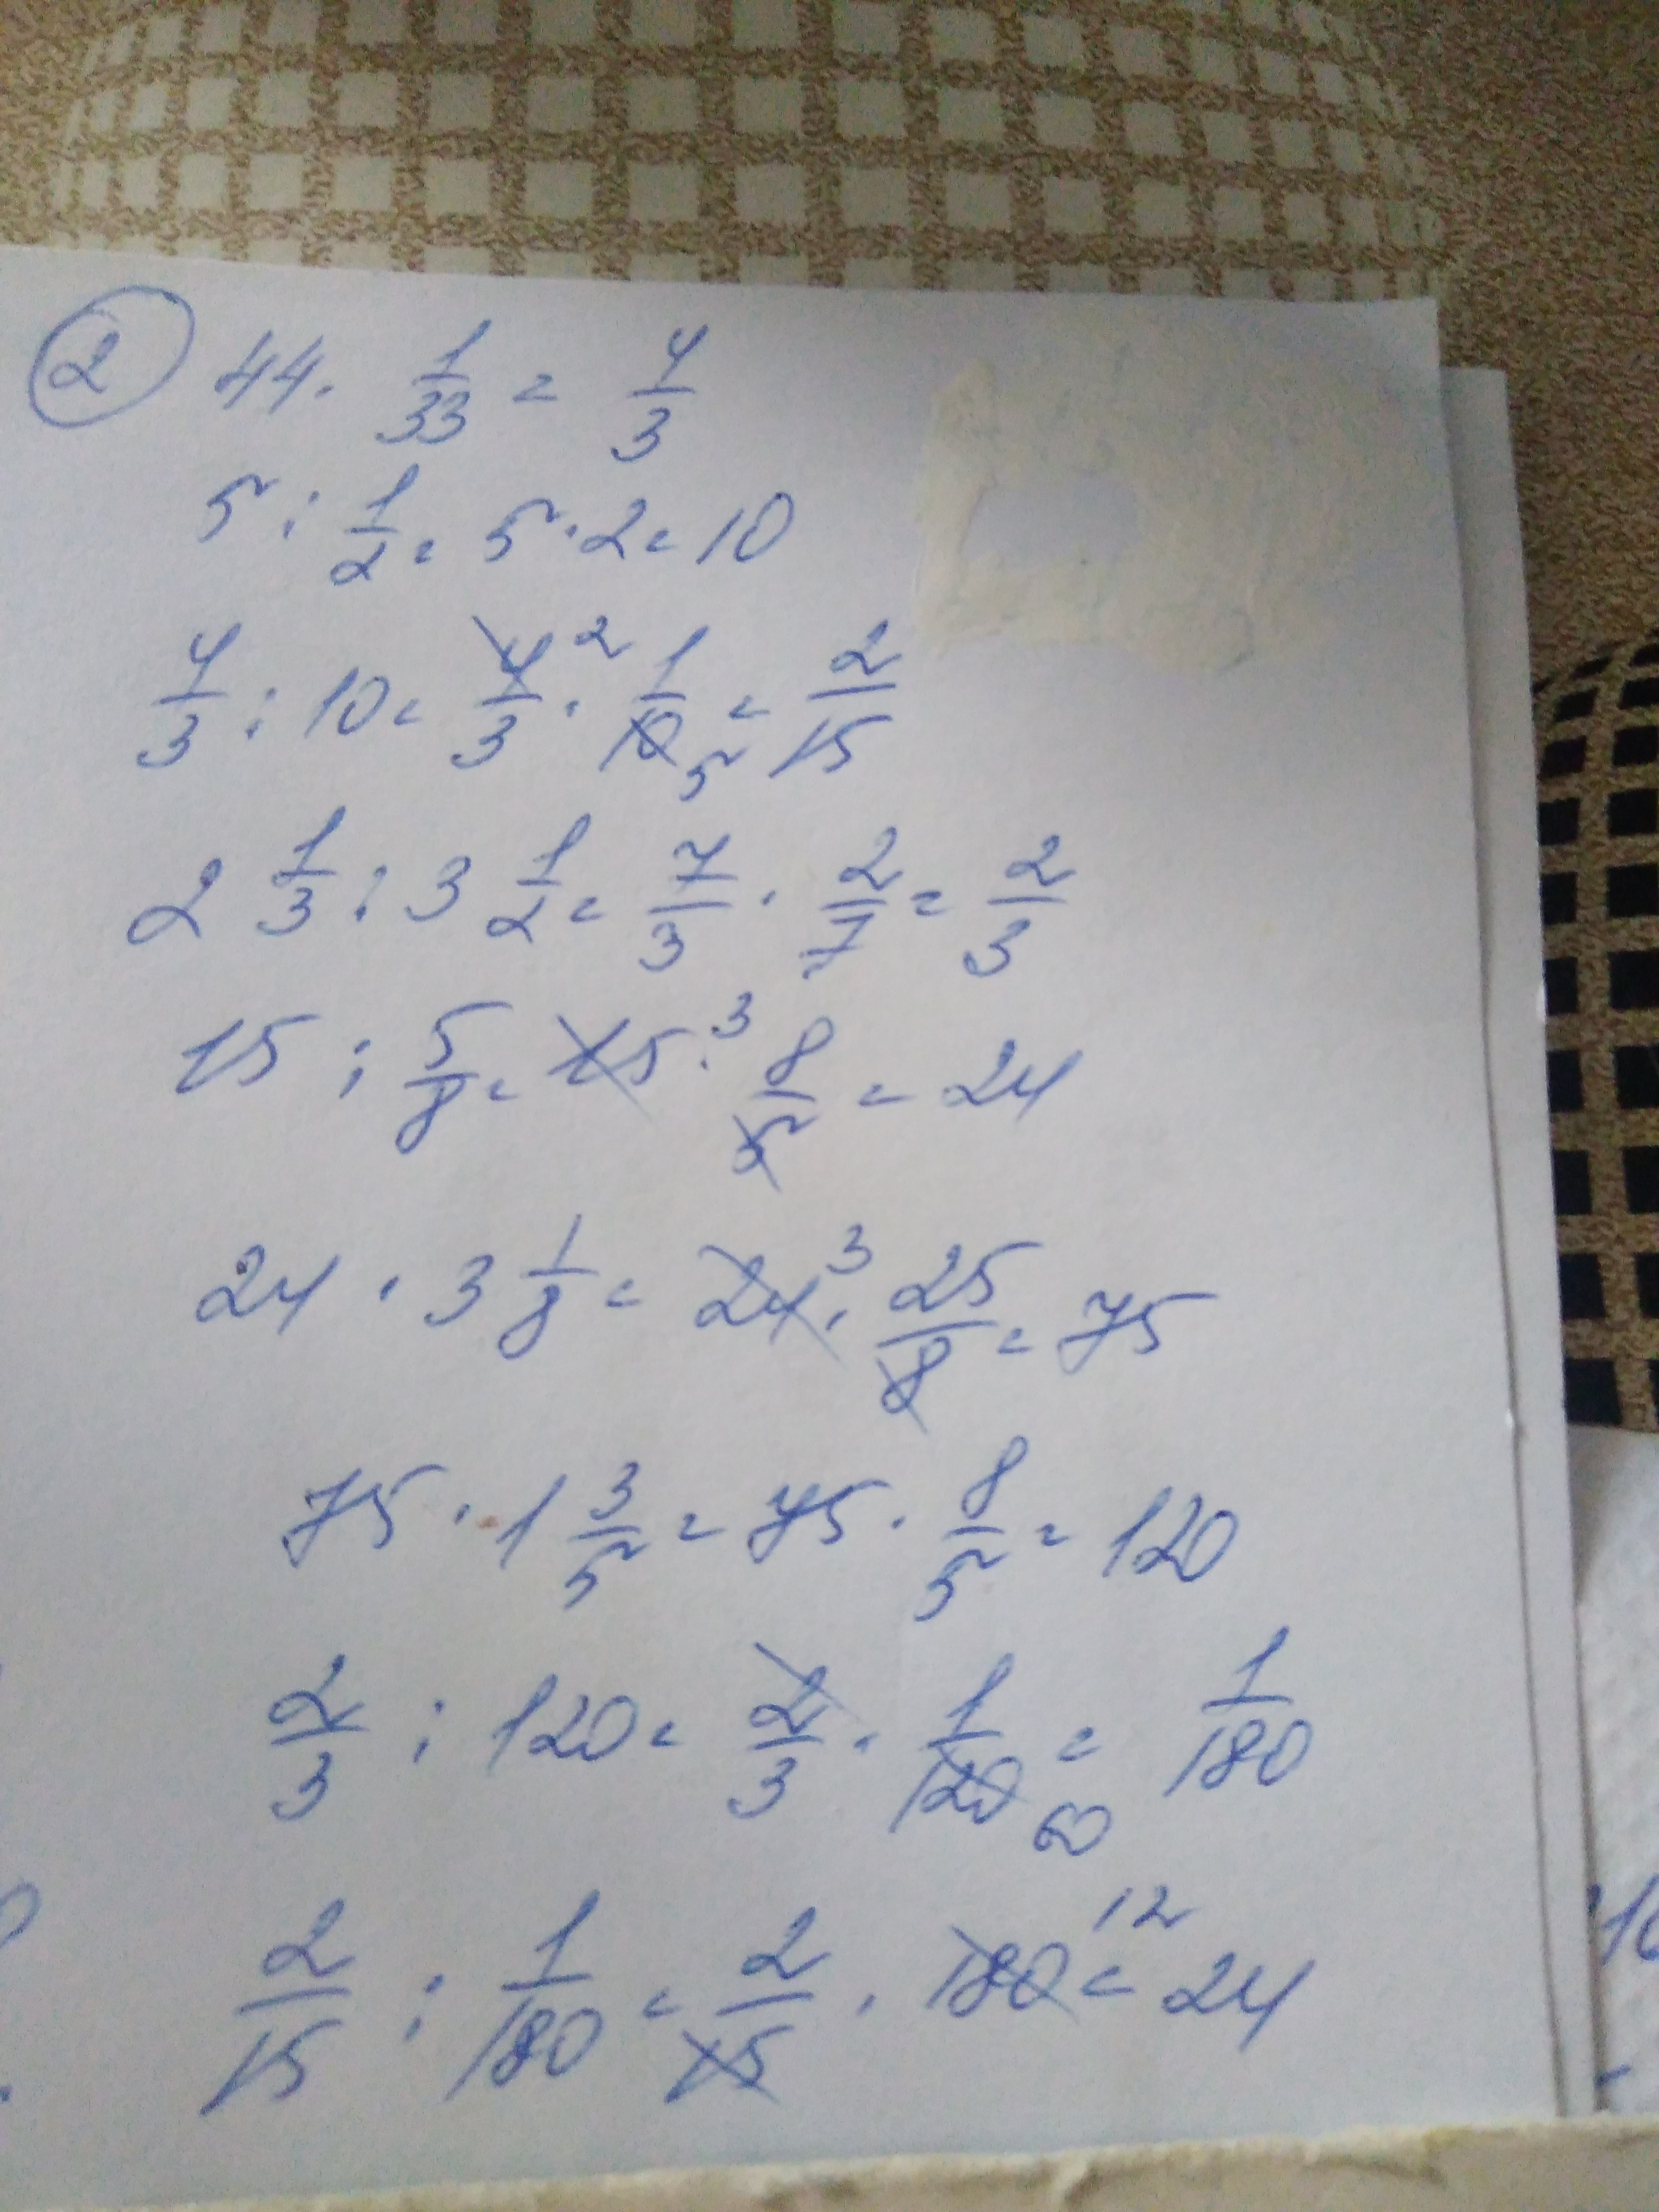 ② 44 · 1/33 = 4/3
5 : 1/2 = 5 · 2 = 10
4/3 : 10 = 4/3 2 · 1/10 5 = 2/15
2 1/3 : 3 1/2 = 7/3 · 2/7 = 2/3
15 : 5/8 = 15 3 · 8/5 = 24
24 · 3 1/8 = 24 3 · 25/8 = 75
75 · 1 3/5 = 75 · 8/5 = 120
2/3 : 120 = 2/3 · 1/120 60 = 1/180
2/15 : 1/180 = 2/15 · 180 12 = 24